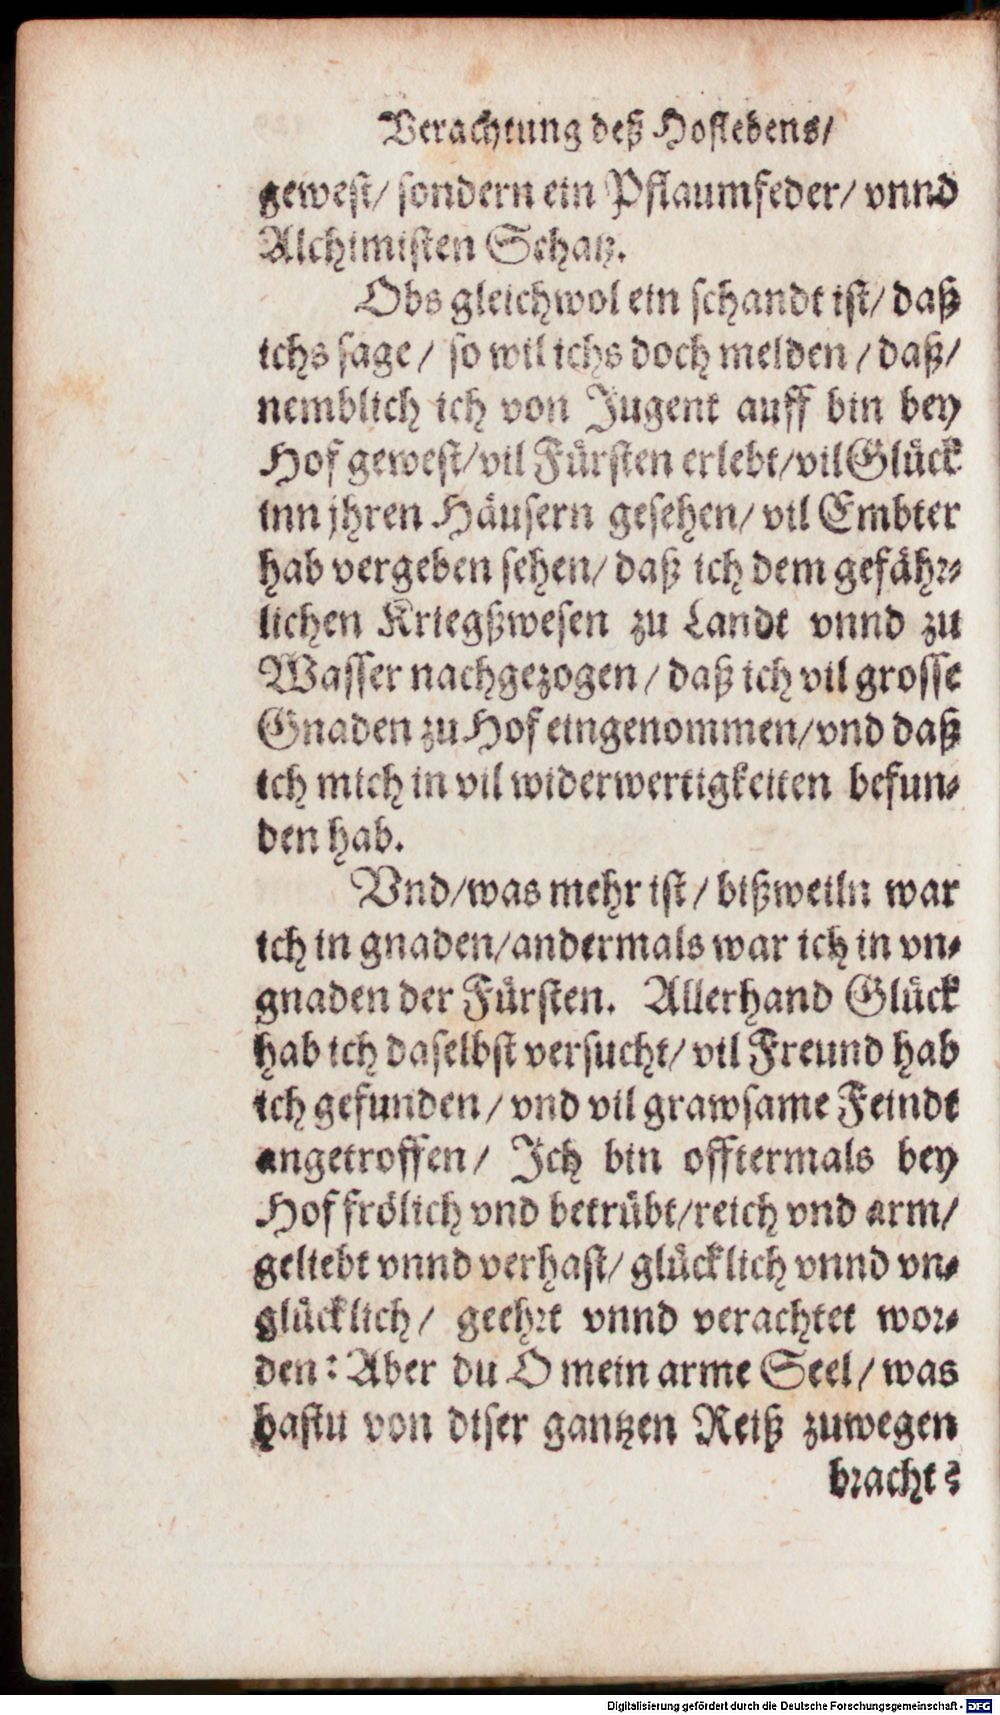 Verachtung deß Hoflebens/
gewest/ sondern ein Pflaumfeder/ vnnd
Alchimisten Schatz.
Obs gleichwol ein schandt ist/ daß
ichs sage/ so wil ichs doch melden/ daß/
nemblich ich von Jugent auff bin bey
Hof gewest/ vil Fürsten erlebt/ vil Glück
inn jhren Häusern gesehen/ vil Embter
hab vergeben sehen/ daß ich dem gefähr-
lichen Kriegßwesen zu Landt vnnd zu
Wasser nachgezogen/ daß ich vil grosse
Gnaden zu Hof eingenommen/ vnd daß
ich mich in vil widerwertigkeiten befun-
den hab.
Vnd/ was mehr ist/ bißweiln war
ich in gnaden/ andermals war ich in vn-
gnaden der Fürsten. Allerhand Glück
hab ich daselbst versucht/ vil Freund hab
ich gefunden/ vnd vil grawsame Feindt
angetroffen/ Ich bin offtermals bey
Hof frölich vnd betrübt/ reich vnd arm/
geliebt vnnd verhast/ glücklich vnnd vn-
glücklich/ geehrt vnnd verachtet wor-
den: Aber du O mein arme Seel/ was
hastu von diser gantzen Reiß zuwegen
bracht?
Digitalisierung gefördert durch die Deutsche Forschungsgemeinschaft - DFG